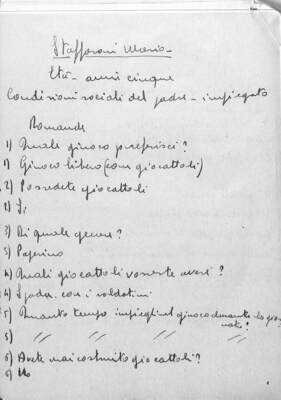 Stafforani Mario -
Età - anni cinque
Condizioni sociali del padre - impiegato
Domande
1) Quale giuoco preferisci?
1) Giuoco libero (con giocattoli)
2) Possedete giocattoli
2) Si
3) Di quale genere?
3) Paperino
4) Quali giocattoli vorreste avere?
4) Spada - con i soldatini
5) Quanto tempo impieghi nel giuoco durante la gior
nata?
5) " " " "
6) Avete mai costruito giocattoli?
6) No